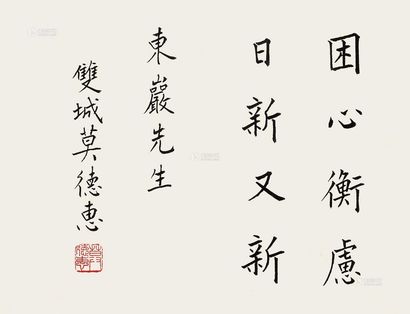 困心衡慮
日新又新
東巖先生
雙城莫德惠